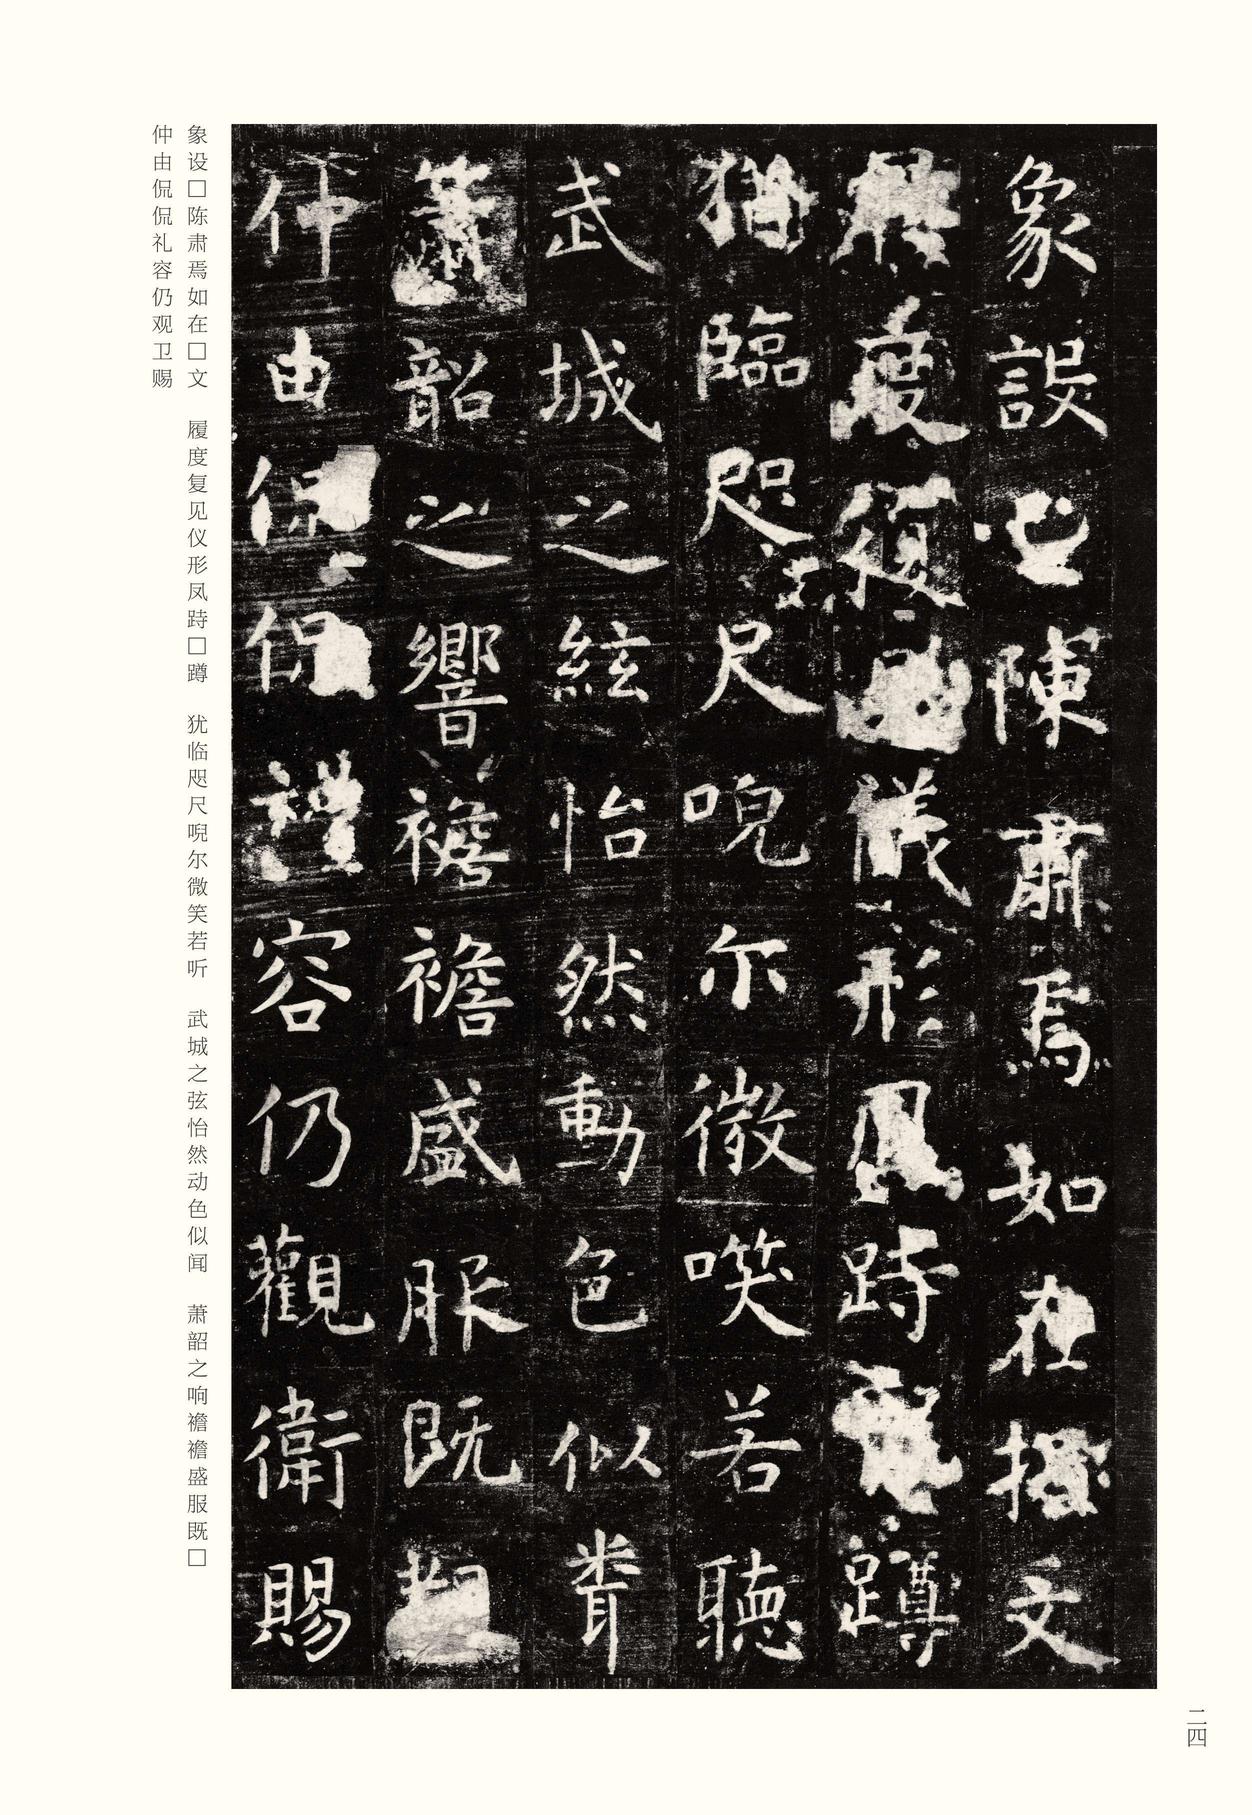 象設陳肅焉如在文
度復儀形鳳跱蹲
猶臨咫尺唲尔微噗若聽
武城之絃怡然動色似
簫韶之響襜襜盛服既
仲由侃侃禮容仍觀衛賜
象设□陈肃焉如在□文 履度复见仪形凤跱□蹲 犹临咫尺唲尔微笑若听 武城之弦怡然动色似闻 萧韶之响襜襜盛服既□
仲由侃侃礼容仍观卫赐
二四